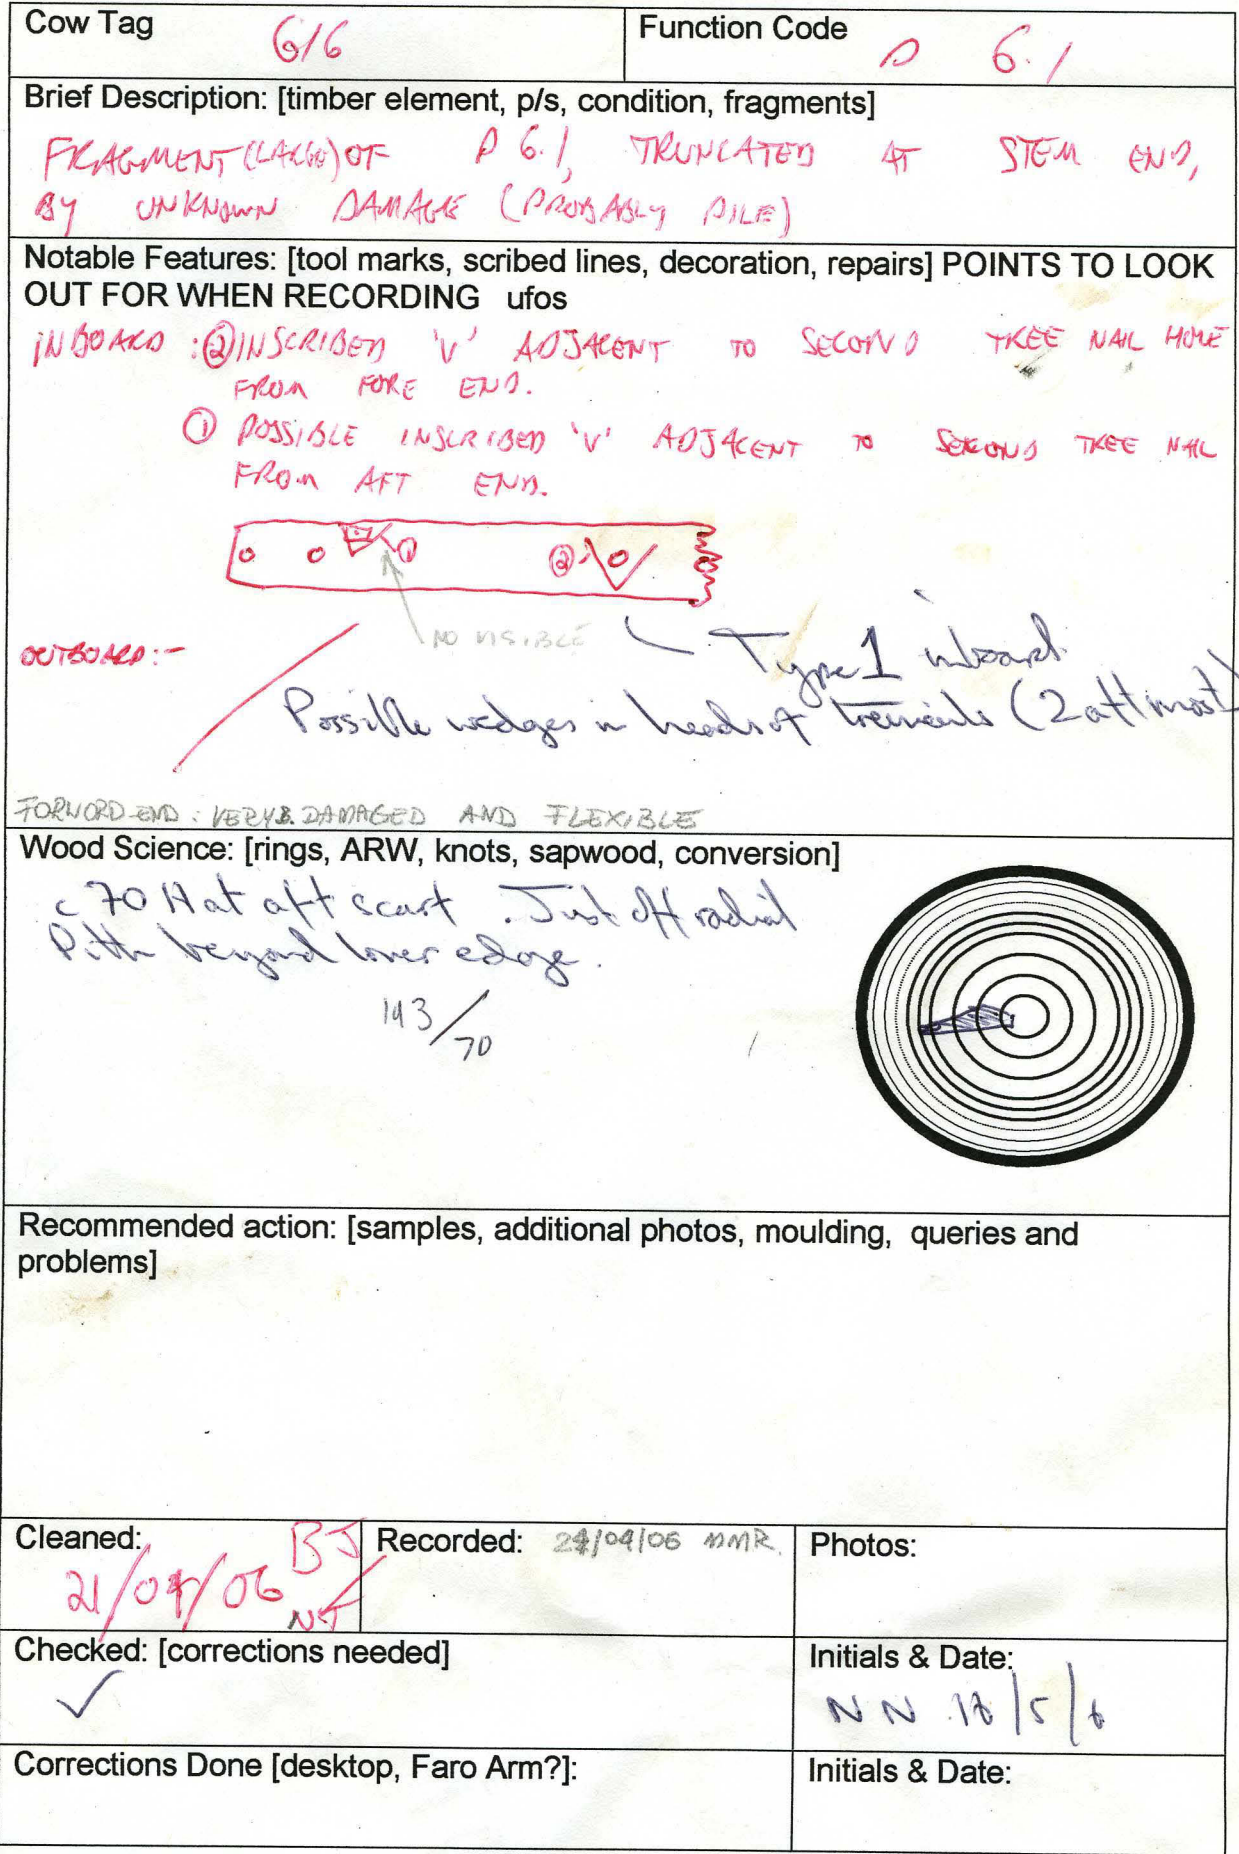 Cow Tag 616
Function Code P 6.1
Brief Description: [timber element, p/s, condition, fragments]
FRAGMENT (LARGE) OF P 6.1, TRUNCATED AT STEM END,
BY UNKNOWN DAMAGE (PROBABLY PILE)
Notable Features: [tool marks, scribed lines, decoration, repairs] POINTS TO LOOK
OUT FOR WHEN RECORDING ufos
INBOARD : ② INSCRIBED 'V' ADJACENT TO SECOND TREE NAIL HOLE
FROM FORE END.
① POSSIBLE INSCRIBED 'V' ADJACENT TO SECOND TREE NAIL
FROM AFT END.
① ②
NO VISIBLE
Type 1 inboard
OUTBOARD:-
Possible wedges in heads of treenails (2 aft most)
FORWORD END: VERY DAMAGED AND FLEXIBLE
Wood Science: [rings, ARW, knots, sapwood, conversion]
c 70 H at aft scarf. Just off radial
Pith beyond lower edge.
143/70
Recommended action: [samples, additional photos, moulding, queries and
problems]
Cleaned: BJ
21/04/06 NJ
Recorded: 24/04/06 MMR.
Photos:
Checked: [corrections needed]
✓
Initials & Date:
NN 18/5/6
Corrections Done [desktop, Faro Arm?]:
Initials & Date: